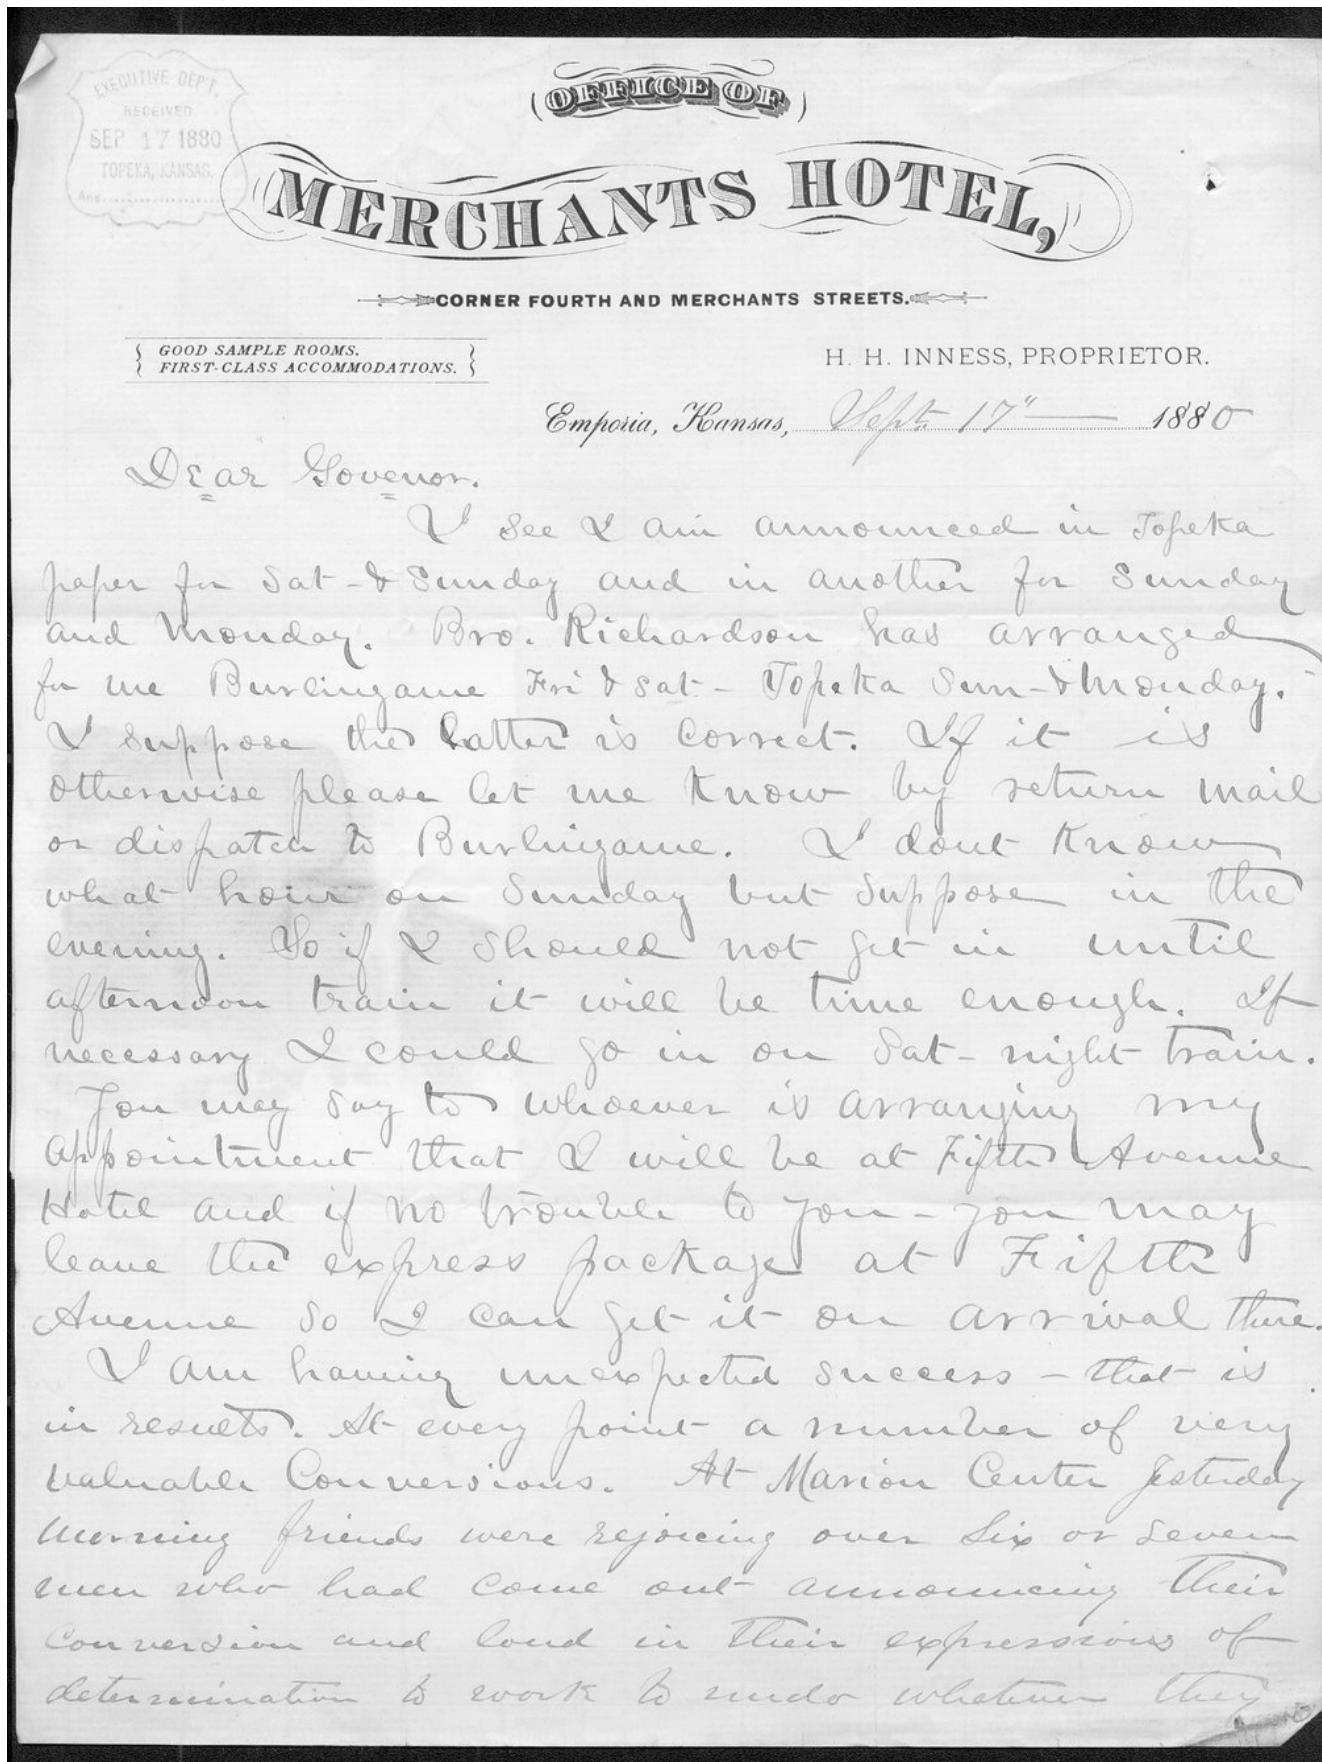 EXECUTIVE DEP'T.
RECEIVED
SEP 17 1880
TOPEKA, KANSAS.
Ans.
OFFICE OF
MERCHANTS HOTEL,
CORNER FOURTH AND MERCHANTS STREETS.
GOOD SAMPLE ROOMS.
FIRST-CLASS ACCOMMODATIONS.
H. H. INNESS, PROPRIETOR.
Emporia, Kansas, Sept. 17" 1880
Dear Govenor.
I see I am announced in Topeka
paper for Sat - & Sunday and in another for Sunday
and Monday. Bro. Richardson has arranged
for me Burlingame Fri & Sat - Topeka Sun - & Monday.
I suppose the latter is correct. If it is
otherwise please let me know by return mail
or dispatch to Burlingame. I dont know
what hour on Sunday but suppose in the
evening. So if I should not get in until
afternoon train it will be time enough. If
necessary I could go in on Sat - night train.
You may say to whoever is arranging my
appointment that I will be at Fifth Avenue
Hotel and if no trouble to you - you may
leave the express package at Fifth
Avenue so I can get it on arrival there.
I am having unexpected success - that is
in results. At every point a number of very
valuable conversions. At Marion Center yesterday
morning friends were rejoicing over six or seven
men who had come out announcing their
conversion and loud in their expressions of
determination to work to undo whatever they